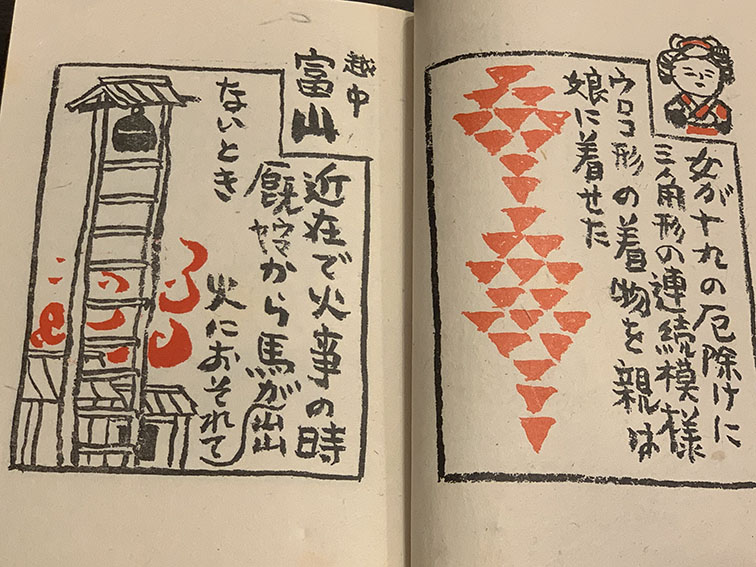 女が十九の厄除けに
三角形の連続模様
ウロコ形の着物を親は
娘に着せた
越中
富山
近在で火事の時
厩から馬が出
火におそれて
ないとき